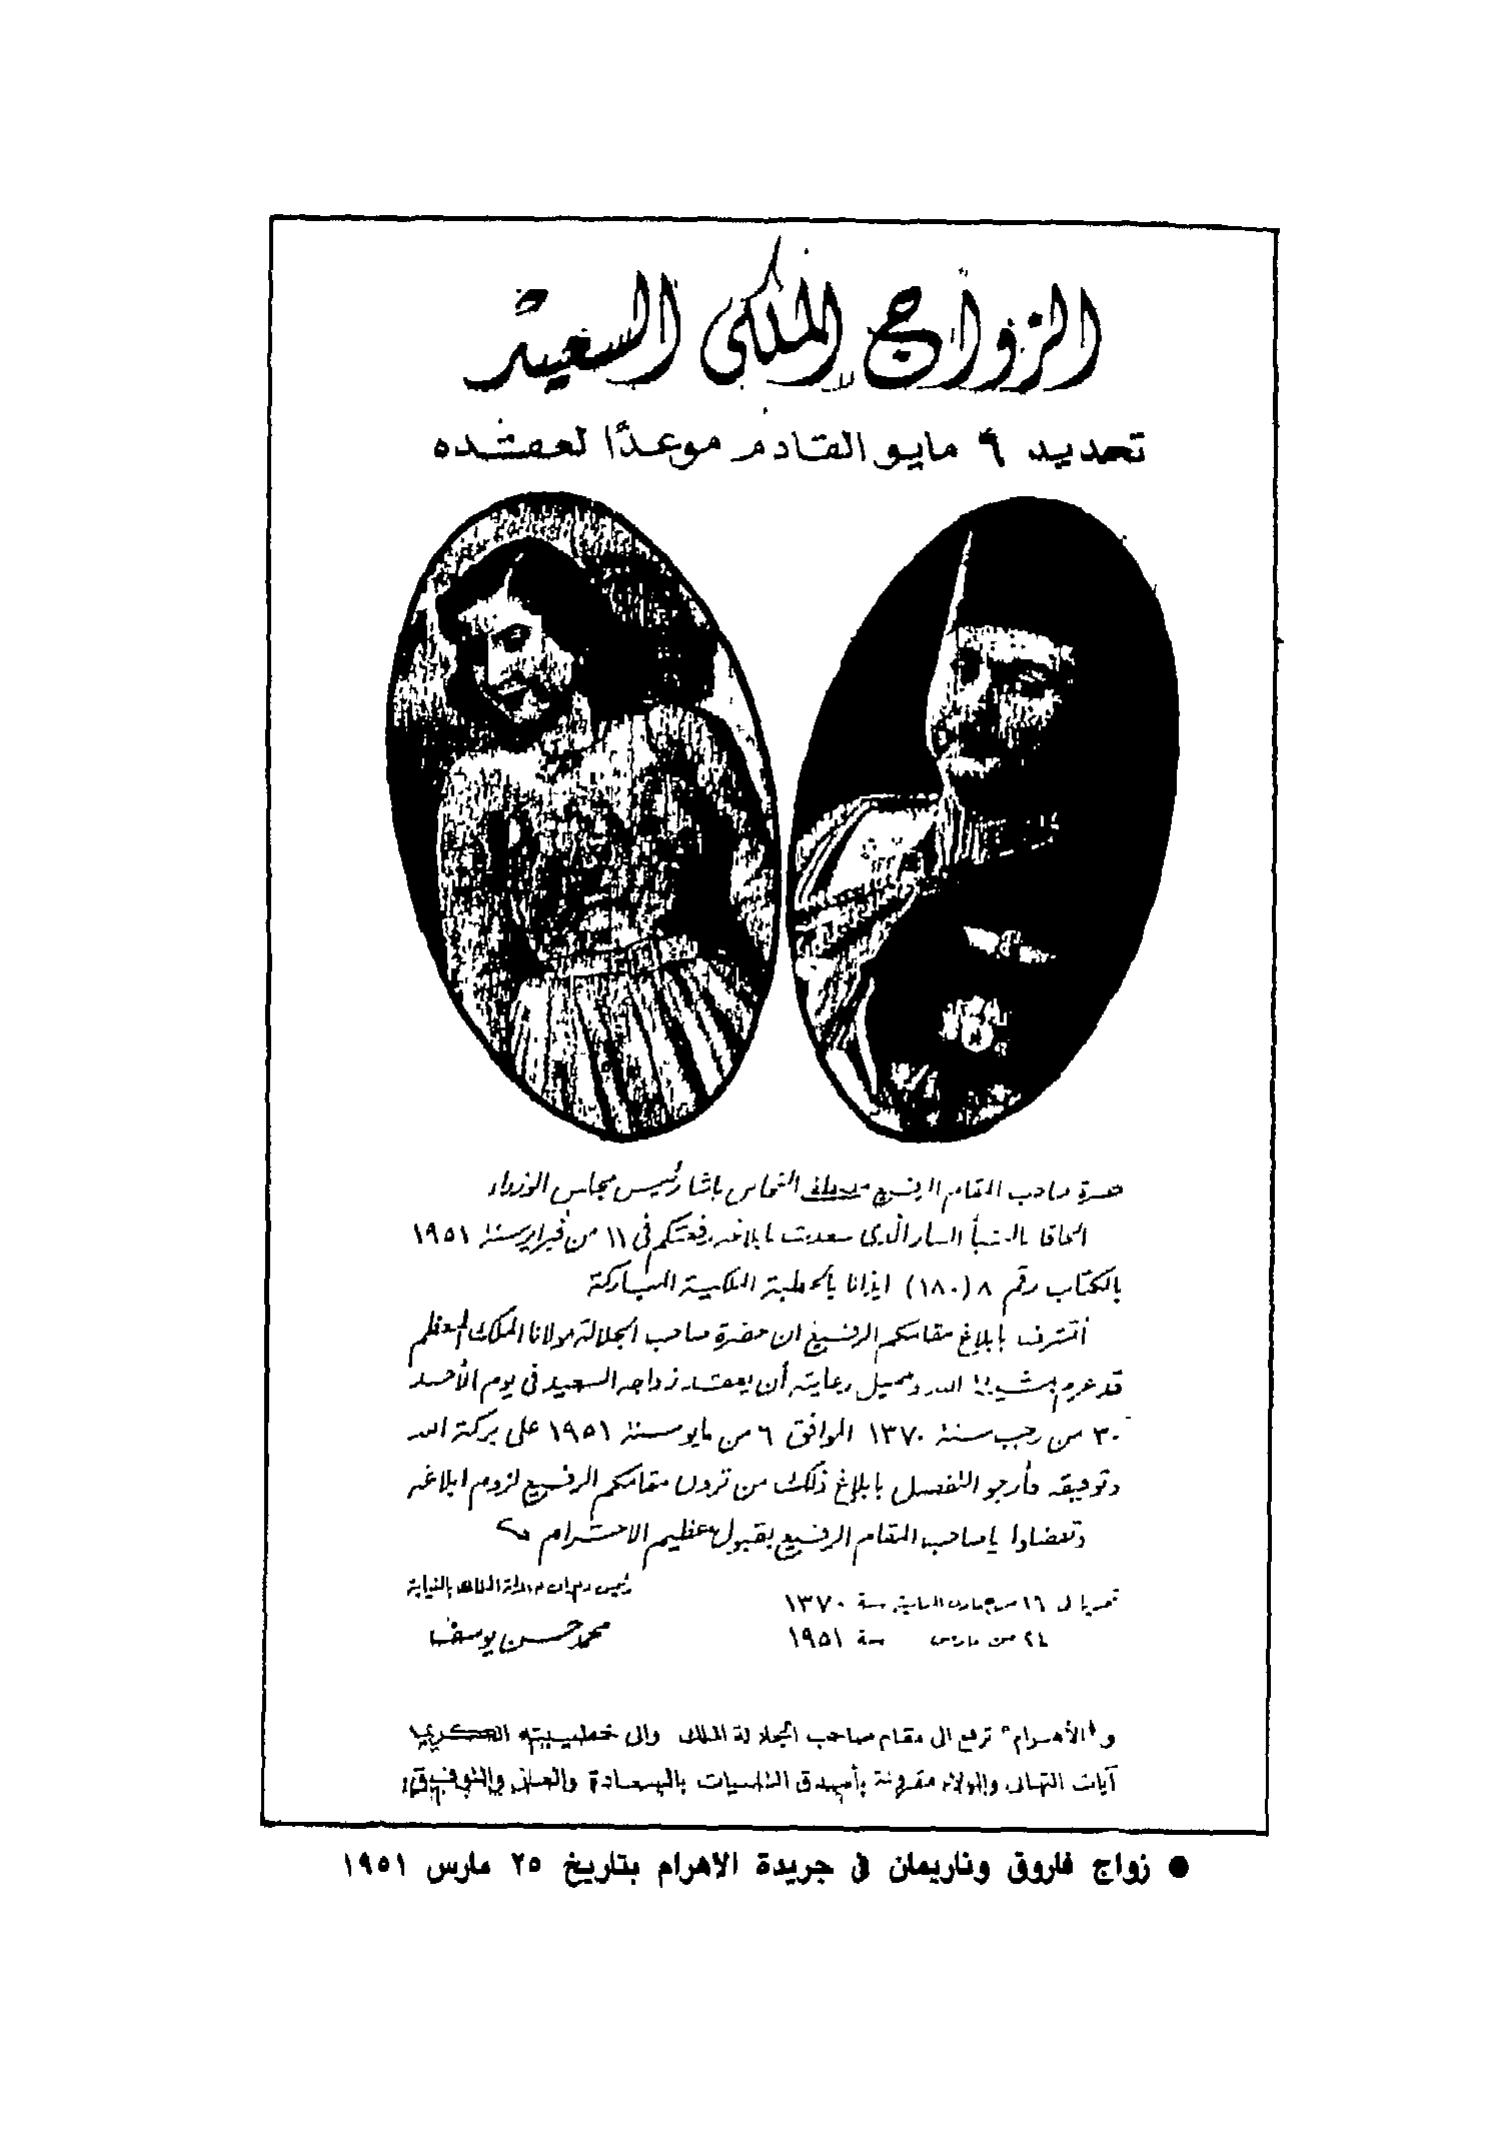 الزواج الملكى السعيد
تحديد ٦ مايو القادم موعدًا لعقده
حضرة صاحب المقام الرفيع مصطفى النحاس باشا رئيس مجلس الوزراء
الحاقا بالنبأ السار الذى سعدت بابلاغه رفعتكم فى ١١ من فبراير سنة ١٩٥١
بالكتاب رقم ٨ (١٨٠) ايذانا بالخطبة الملكية المباركة
أتشرف بابلاغ مقامكم الرفيع ان حضرة صاحب الجلالة مولانا الملك المعظم
قد عزم بمشيئة الله وجميل رعايته أن يعقد زواجه السعيد فى يوم الأحد
٣٠ من رجب سنة ١٣٧٠ الموافق ٦ من مايو سنة ١٩٥١ على بركة الله
وتوفيقه فأرجو التفضل بابلاغ ذلك من ترون مقامكم الرفيع لزوم ابلاغه
وتفضلوا يا صاحب المقام الرفيع بقبول عظيم الاحترام
رئيس ديوان جلالة الملك بالنيابة
محمد حسن يوسف
تحريرا فى ١٦ من جمادى الثانية سنة ١٣٧٠
٢٤ من مارس سنة ١٩٥١
و "الأهرام" ترفع الى مقام صاحب الجلالة الملك والى خطيبته الكريمة
آيات التهانى والولاء مقرونة بأصدق التمنيات بالسعادة والهناء والتوفيق
● زواج فاروق وناريمان فى جريدة الاهرام بتاريخ ٢٥ مارس ١٩٥١